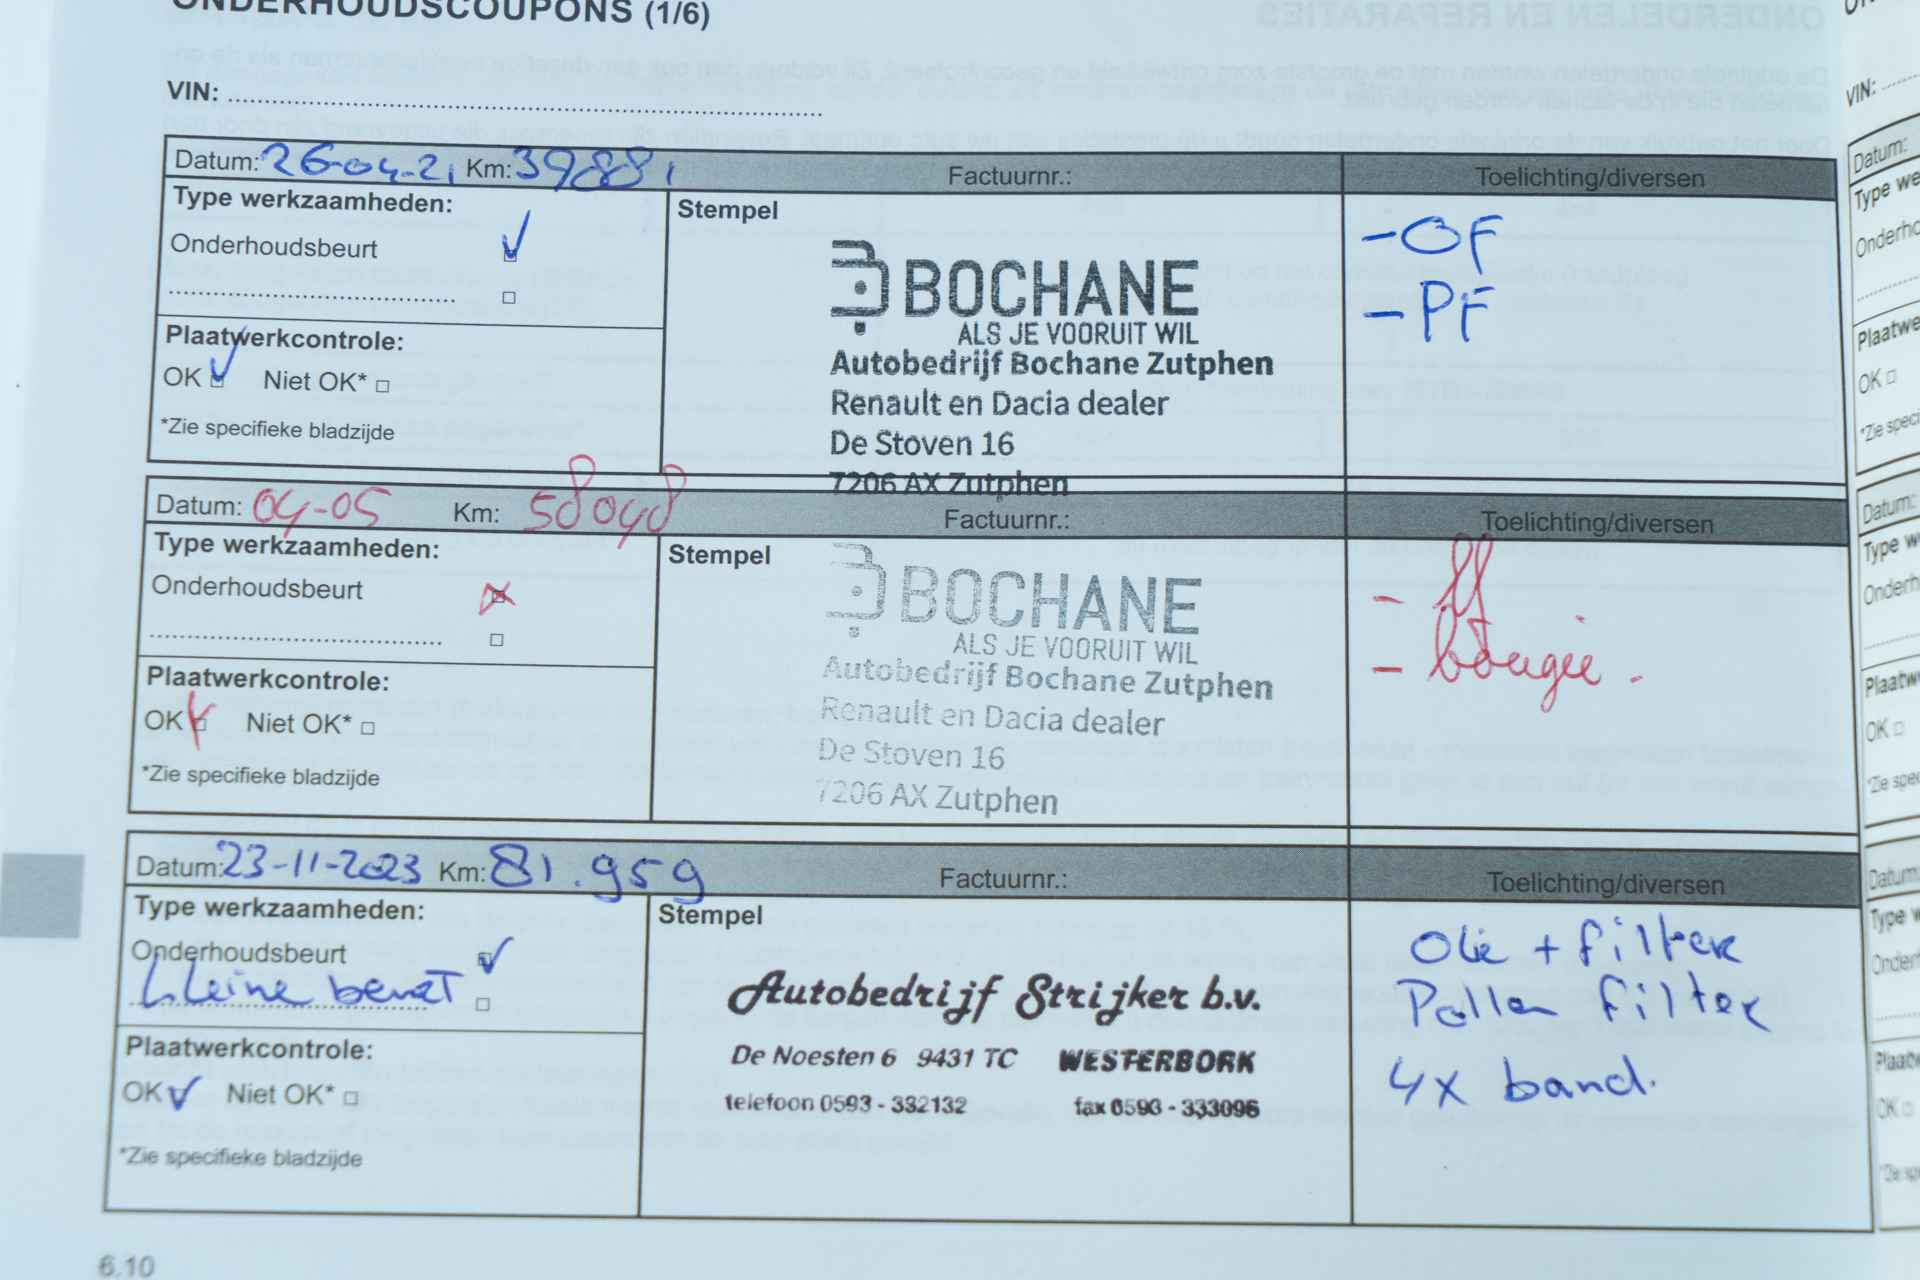 ONDERHOUDSCOUPONS (1/6)
VIN:
Datum: 26-04-21 Km: 39881 Factuurnr.: Toelichting/diversen
Type werkzaamheden: Stempel
Onderhoudsbeurt
- OF
- PF
BOCHANE
ALS JE VOORUIT WIL
Autobedrijf Bochane Zutphen
Renault en Dacia dealer
De Stoven 16
7206 AX Zutphen
Plaatwerkcontrole:
OK Niet OK*
*Zie specifieke bladzijde
Datum: 04-05 Km: 58048 Factuurnr.: Toelichting/diversen
Type werkzaamheden: Stempel
Onderhoudsbeurt
- bougie.
BOCHANE
ALS JE VOORUIT WIL
Autobedrijf Bochane Zutphen
Renault en Dacia dealer
De Stoven 16
7206 AX Zutphen
Plaatwerkcontrole:
OK Niet OK*
*Zie specifieke bladzijde
Datum: 23-11-2023 Km: 81.959 Factuurnr.: Toelichting/diversen
Type werkzaamheden: Stempel
Onderhoudsbeurt
kleine beurt
Olie + filter
Pollen filter
4x band.
Autobedrijf Strijker b.v.
De Noesten 6 9431 TC WESTERBORK
telefoon 0593 - 332132 fax 0593 - 333096
Plaatwerkcontrole:
OK Niet OK*
*Zie specifieke bladzijde
6.10
VIN:
Datum:
OK
Datum:
OK
OK